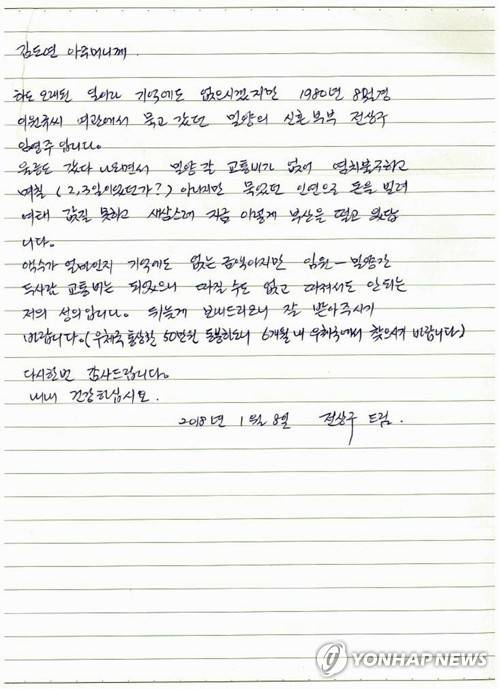 김도연 아주머니께.
하도 오래된 일이라 기억에도 없으시겠지만 1980년 8월경
이원휴씨 여관에서 묵고 갔던 밀양의 신혼부부 전상구
임영주입니다.
울릉도 갔다 나오면서 밀양 갈 교통비가 없어 염치불구하고
며칠 (2,3일이었던가?) 아니지만 묵었던 인연으로 돈을 빌려
여태 갚질 못하고 새삼스레 지금 이렇게 부산을 떨고 있답
니다.
액수가 얼마인지 기억에도 없는 금액이지만 임원-밀양간
두사람 교통비는 되었으니 따질 수도 없고 따져서도 안 되는
저의 성의입니다. 뒤늦게 보내드리오니 잘 받아주시기
바랍니다.(우체국 통상환 50만원 동봉하오니 6개월 내 우체국에서 찾으시기 바랍니다)
다시한번 감사드립니다.
내내 건강하십시오.
2018년 1월 8일 전상구 드림.
YONHAP NEWS